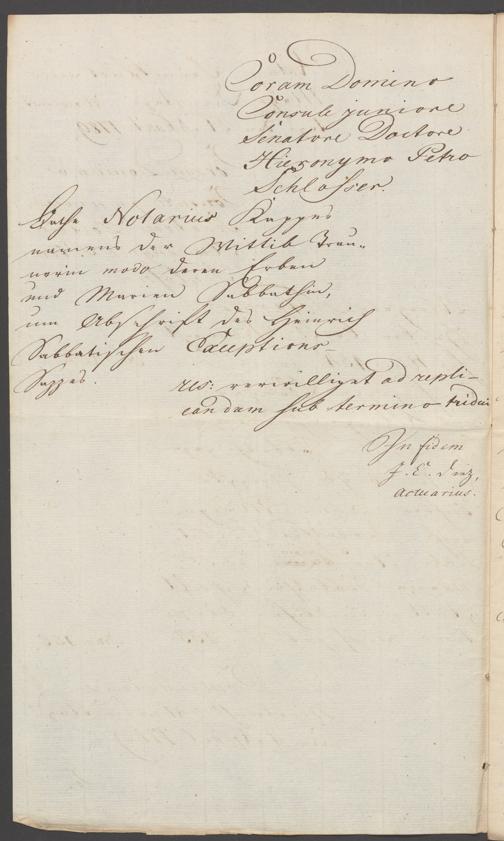 Coram Domino
Consule juniore
Senatore Doctore
Hieronymo Petro
Schlosser.
Bathe Notarius Kappes
namens der Wittib Trau-
norin modo deren Erben
und Marien Sabbathin,
um Abschrift des Heinrich
Sabbatischen Exceptions
Sazzes.
res: verwilliget ad repli-
candam sub termino tridui
In fidem
J. E. 
actuarius.